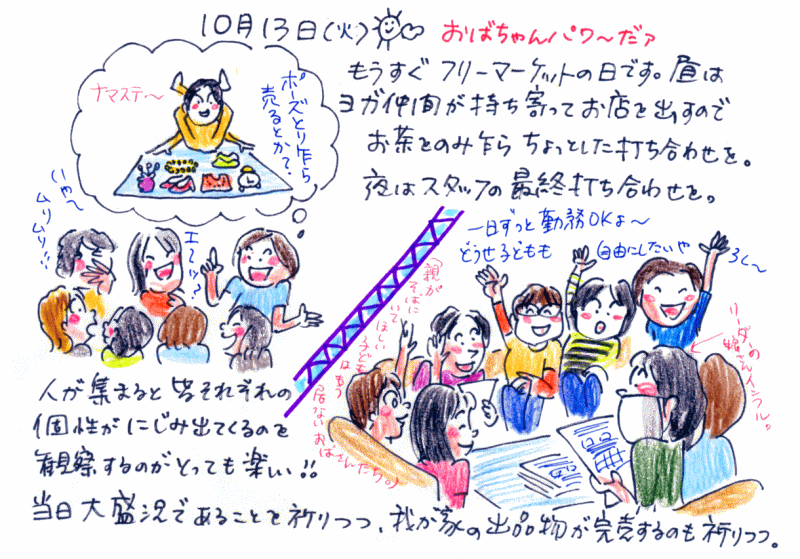 10月13日(火)
おばちゃんパワ〜だァ
もうすぐ フリーマーケットの日です。昼は
ヨガ仲間が持ち寄ってお店を出すので
お茶をのみ乍ら ちょっとした打ち合わせを。
夜はスタッフの最終打ち合わせを。
ナマステ〜
ポーズとり乍ら
売るとか?
いや〜
ムリムリ!!
エーッ?
一日ずっと勤務OKよ〜
どうせ子どもも
自由にしたいや
ろく〜
(親が
そばに
いてほしい
子どもは
もう
居ない おばさんたち。)
リーダーの
娘さんインフル。
人が集まると皆それぞれの
個性がにじみ出てくるのを
観察するのがとっても楽しい!!
当日大盛況であることを祈りつつ、我が家の出品物が完売するのも祈りつつ。